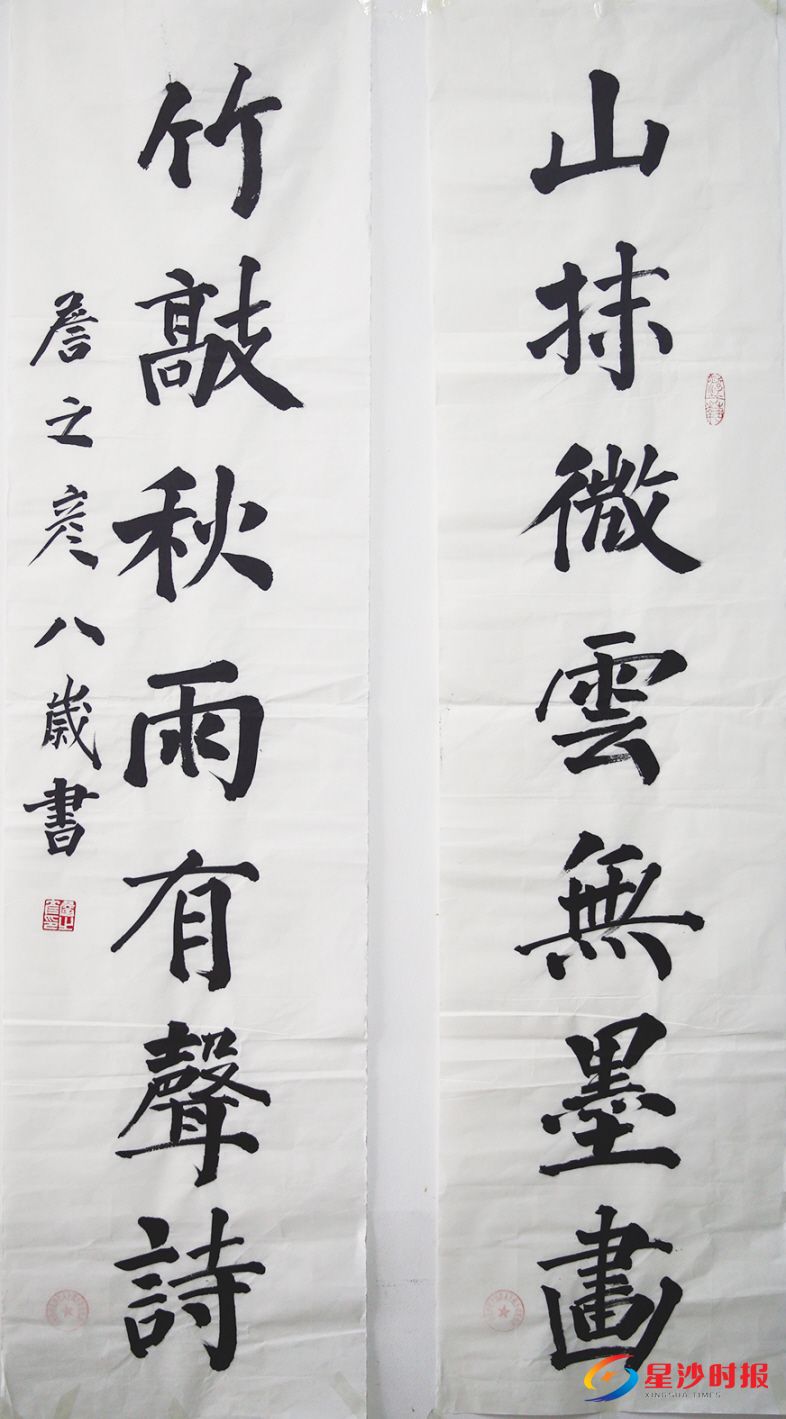 山抹微雲無墨畫
竹敲秋雨有聲詩
詹之彦八歲書
星沙时报
XINGSUA TIMES